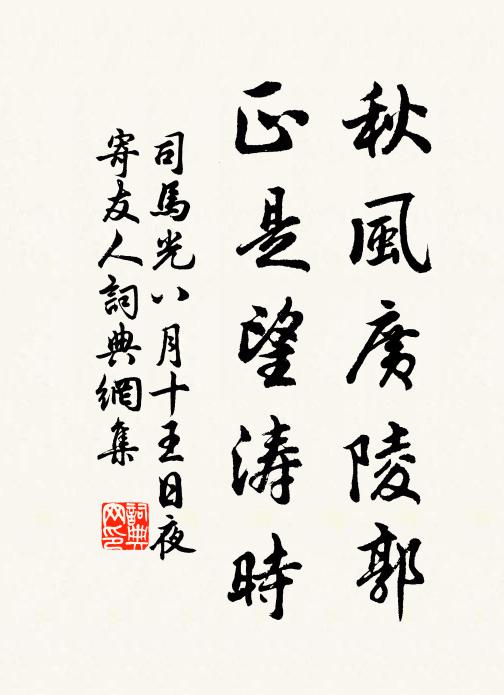 秋風廣陵郭
正是望濤時
司馬光八月十五日夜
寄友人詞典網集
詞典
网印